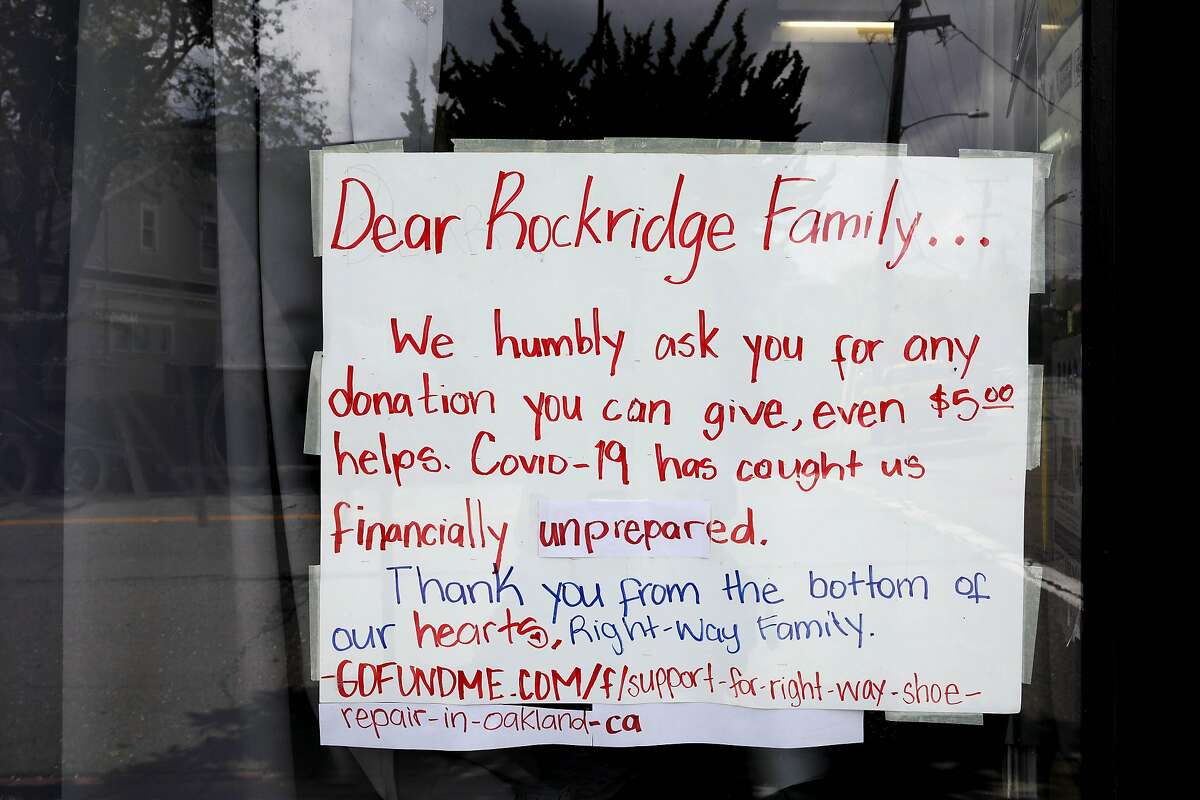 Dear Rockridge Family...
We humbly ask you for any
donation you can give, even $5.00
helps. Covid-19 has caught us
financially unprepared.
Thank you from the bottom of
our hearts, Right-Way Family.
-GOFUNDME.COM/f/support-for-right-way-shoe-
repair-in-oakland-ca